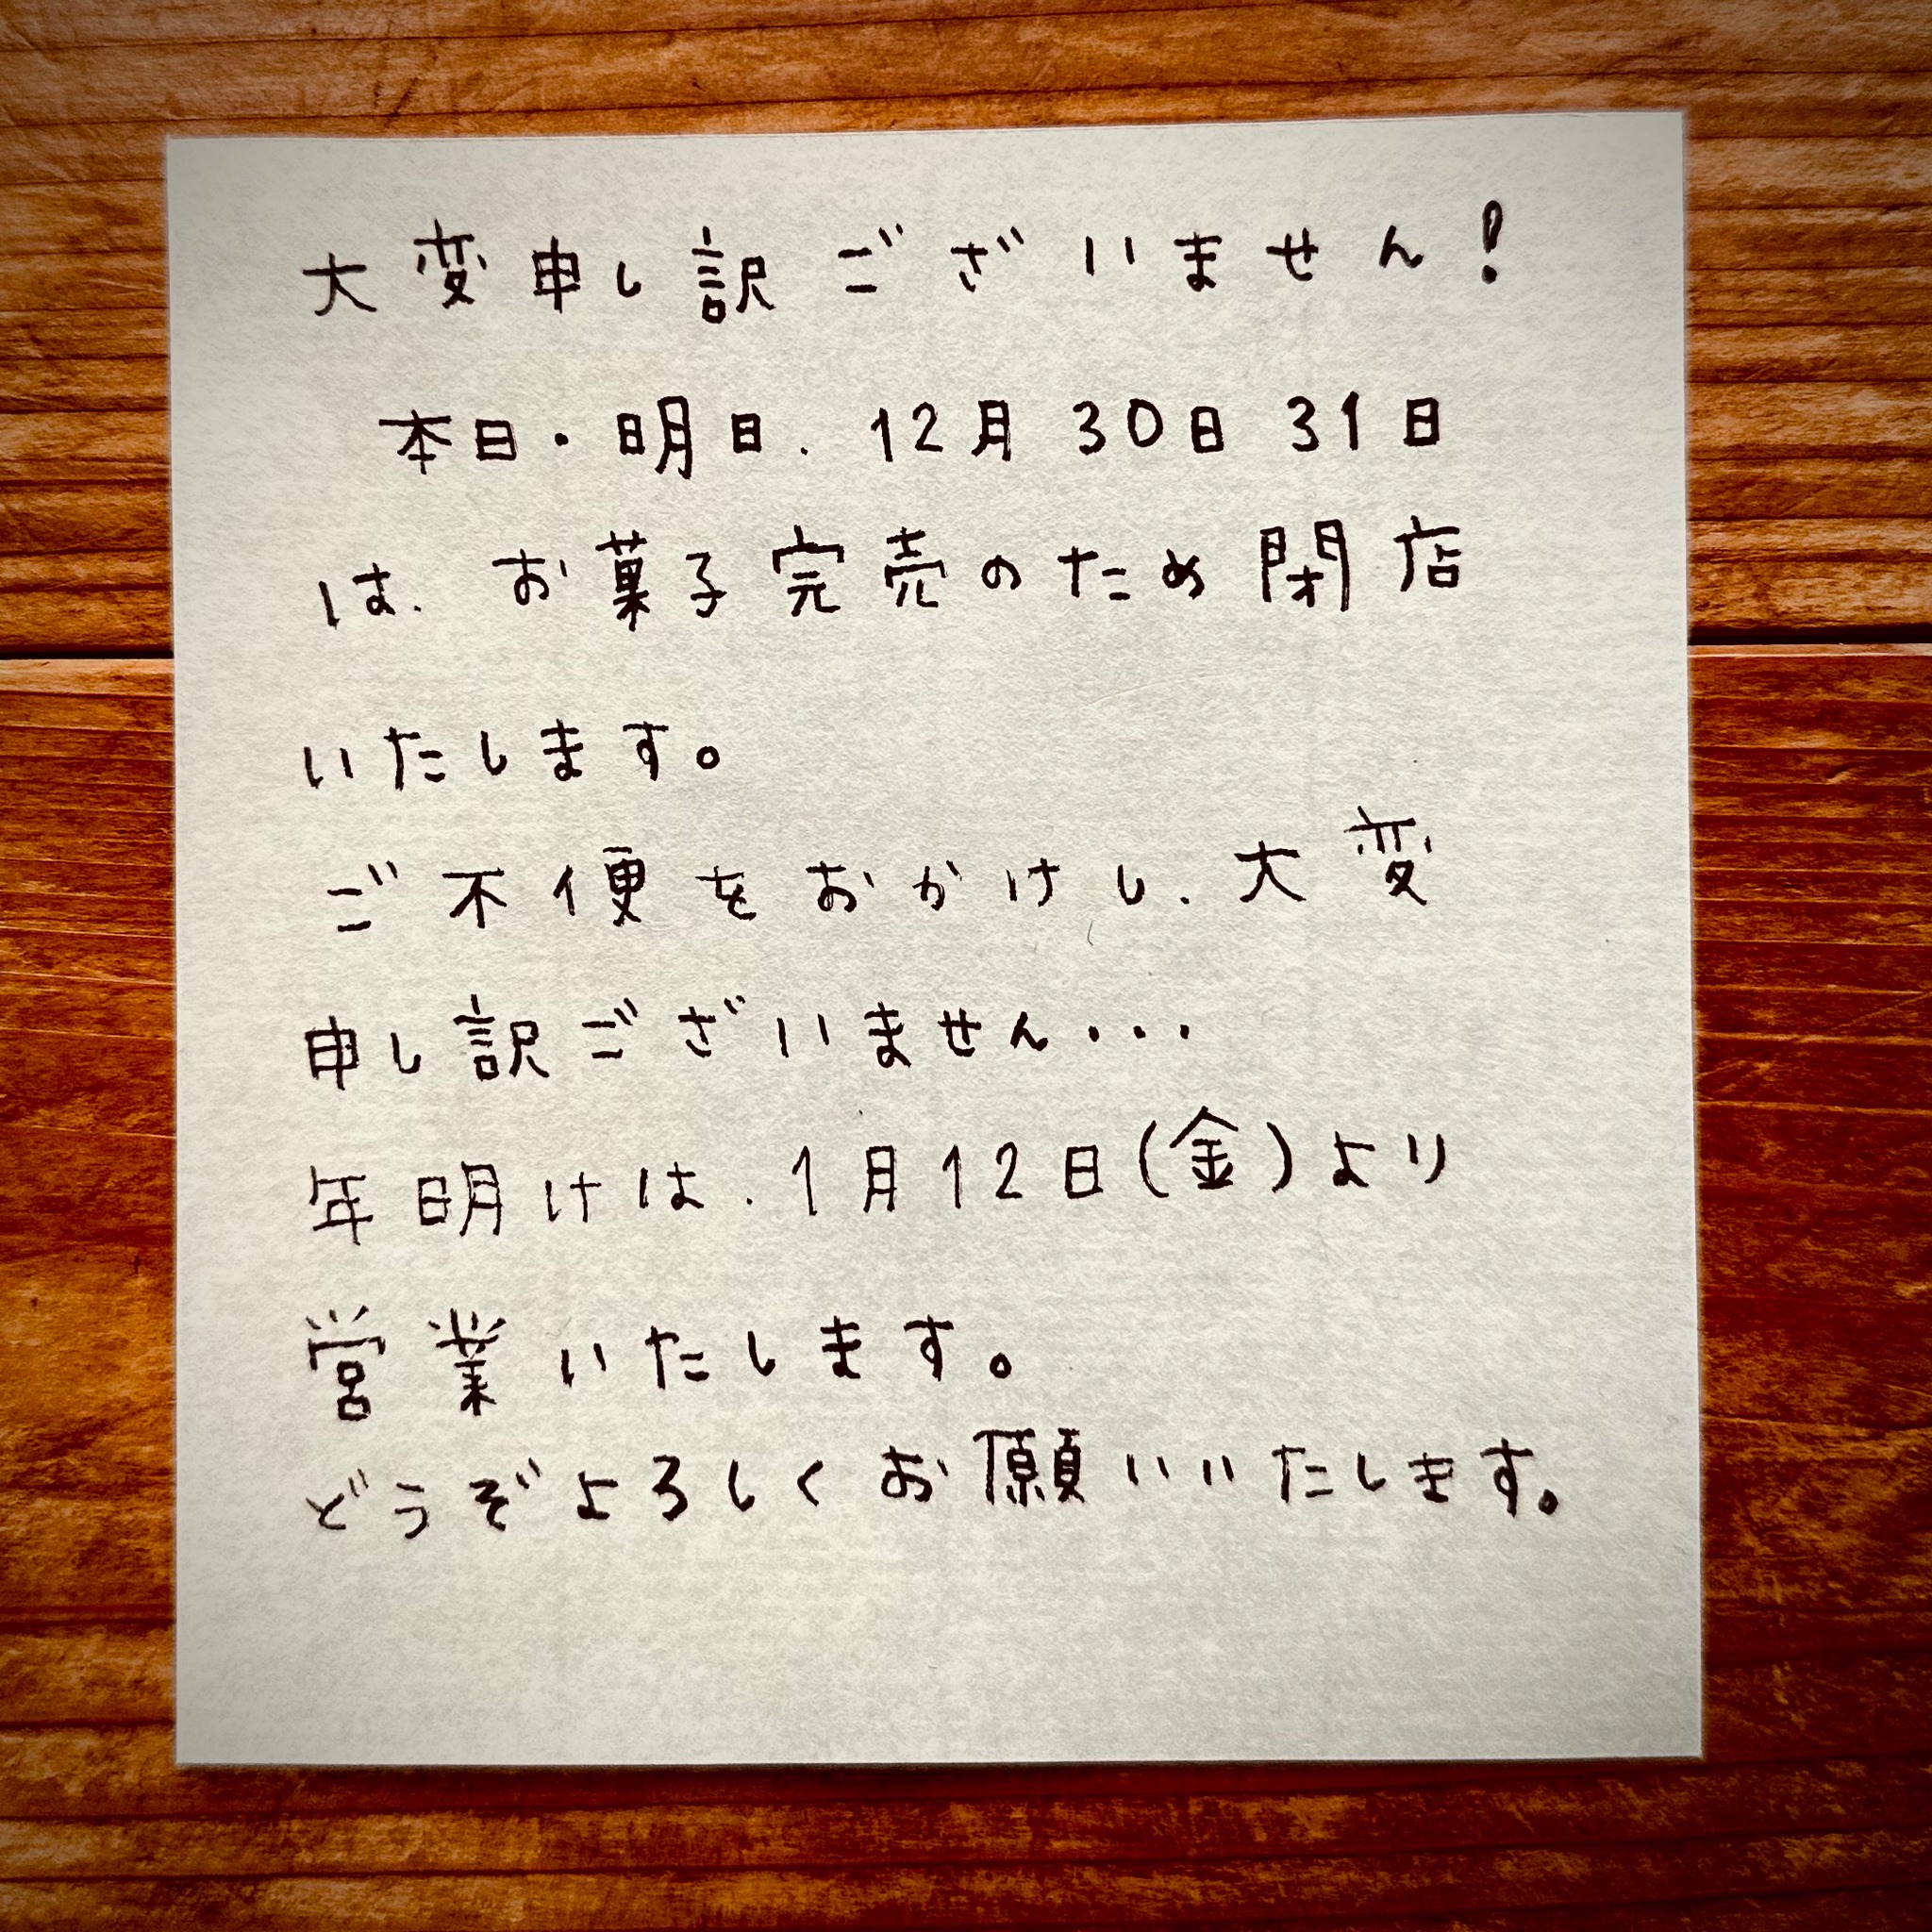 大変申し訳ございません!
本日・明日、12月30日31日
は、お菓子完売のため閉店
いたします。
ご不便をおかけし、大変
申し訳ございません・・・
年明けは、1月12日(金)より
営業いたします。
どうぞよろしくお願いいたします。